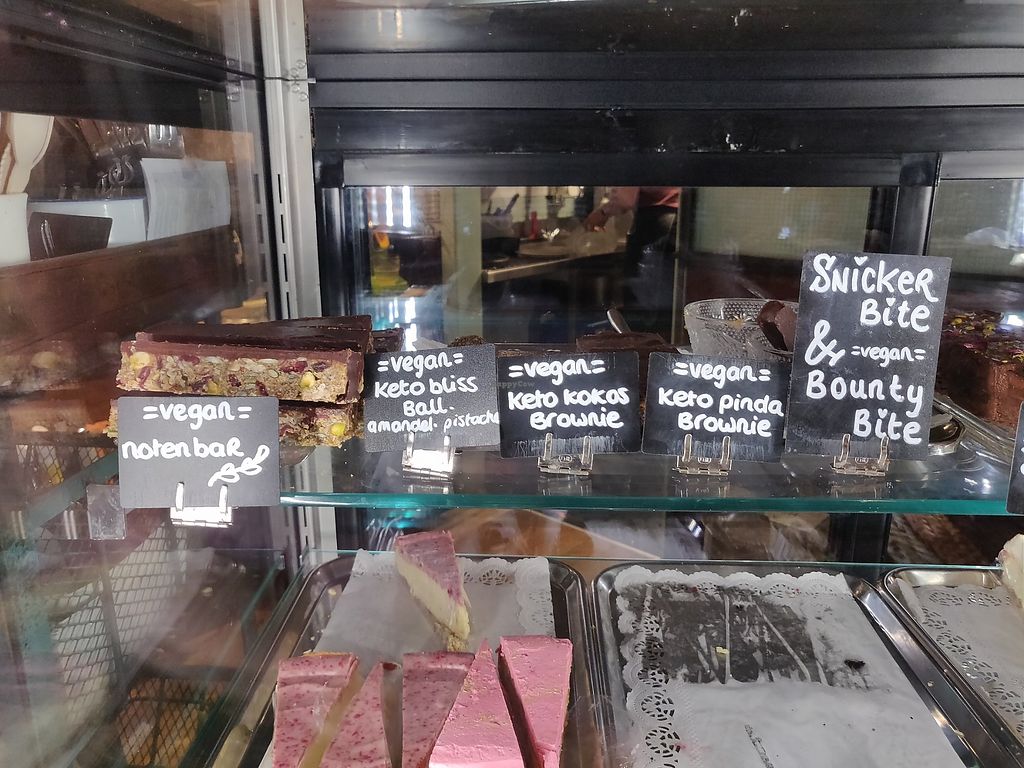 =vegan=
notenbar
=vegan=
Keto bliss
Ball.
amandel. pistache
=vegan=
Keto kokos
Brownie
=vegan=
Keto pinda
Brownie
Snicker
Bite
& =vegan=
Bounty
Bite